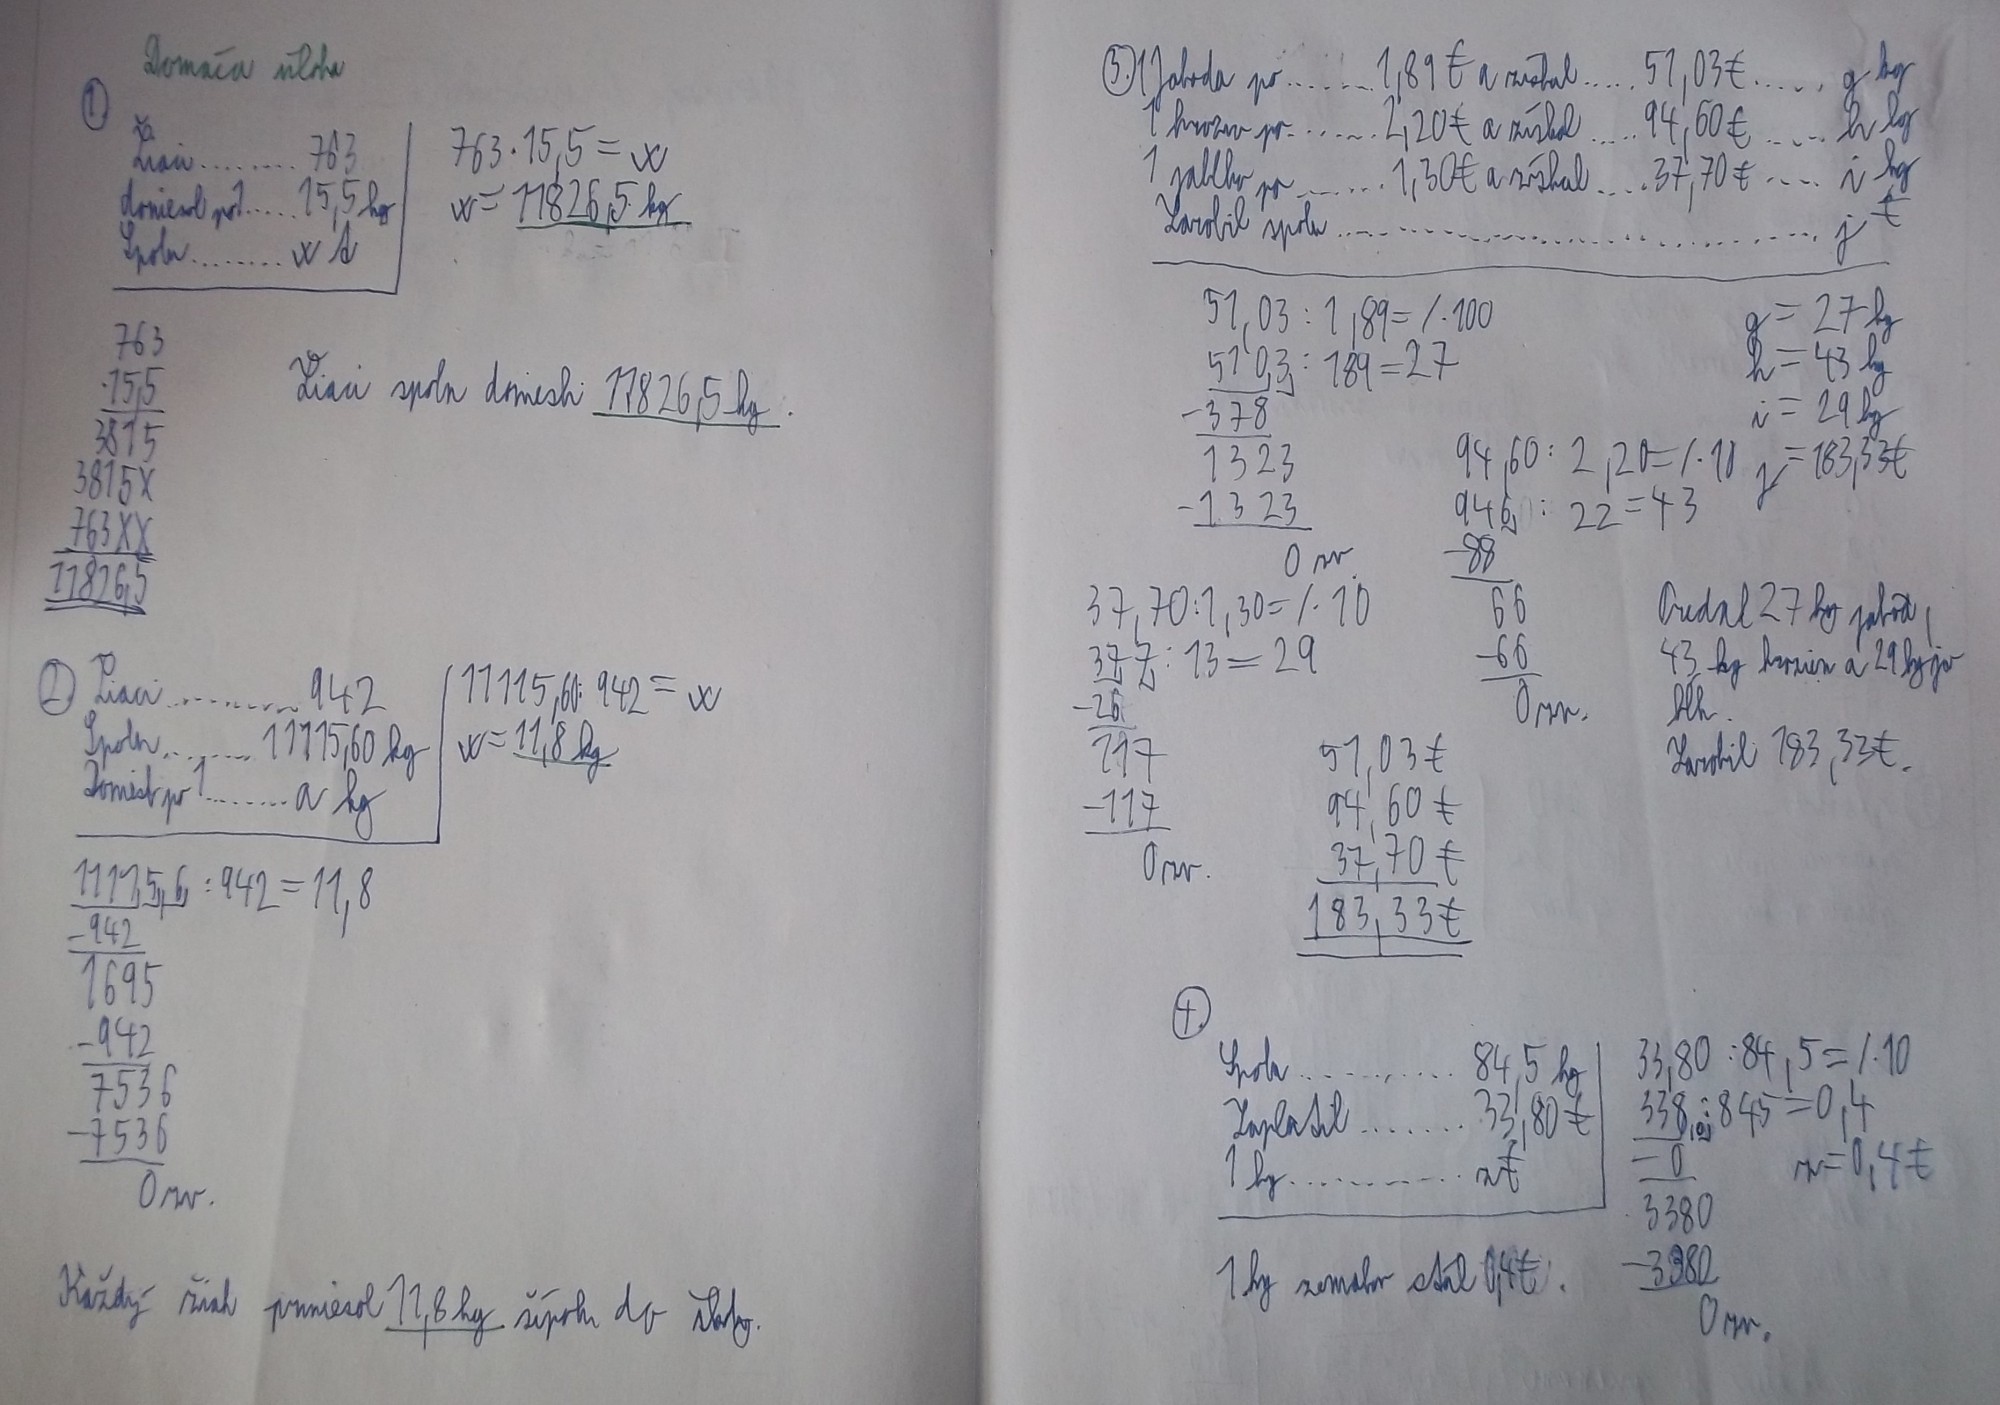 Domáca úloha
1.
Žiaci ........ 763
doniesol po 1 ..... 15,5 kg
Spolu ........ x
763 · 15,5 = x
x = 11826,5 kg
763
·15,5
3815
3815X
763XX
11826,5
Žiaci spolu doniesli 11826,5 kg.
2. Žiaci ............ 942
Spolu ......... 11115,60 kg
Doniesli po 1 ....... a kg
11115,60 : 942 = x
x = 11,8 kg
11115,6 : 942 = 11,8
-942
1695
-942
7536
-7536
0 zv.
Každý žiak priniesol 11,8 kg šípok do školy.
3. 1 Jahoda po ....... 1,89 € a získal .... 51,03 € ..... g kg
1 hrozno po ....... 2,20 € a získal .... 94,60 € ..... h kg
1 jablko po ....... 1,30 € a získal .... 37,70 € .... i kg
Zarobil spolu ........................... j €
51,03 : 1,89 = /·100
5103 : 189 = 27
-378
1323
-1323
0 zv.
g = 27 kg
h = 43 kg
i = 29 kg
j = 183,33 €
94,60 : 2,20 = /·10
946 : 22 = 43
-88
66
-66
0 zv.
37,70 : 1,30 = /·10
377 : 13 = 29
-26
117
-117
0 zv.
51,03 €
94,60 €
37,70 €
183,33 €
Predal 27 kg jahôd,
43 kg hrozien a 29 kg ja
bĺk.
Zarobil 183,33 €.
4.
Spolu .......... 84,5 kg
Zaplatil ....... 33,80 €
1 kg ........... z €
33,80 : 84,5 = /·10
338,0 : 845 = 0,4
-0
3380
-3380
0 zv.
z = 0,4 €
1 kg zemiakov stál 0,4 €.